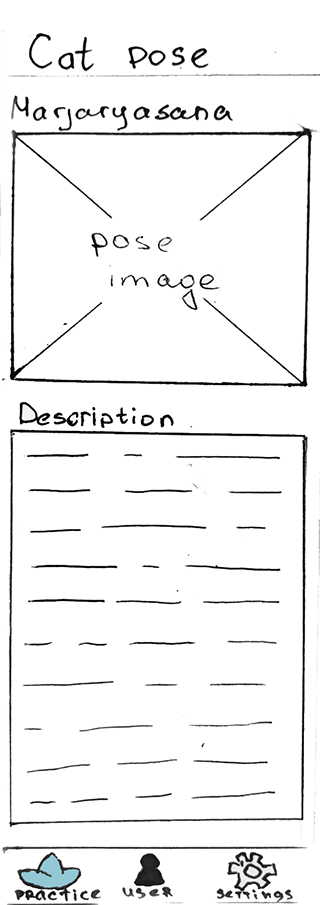 Cat pose
Marjaryasana
pose
image
Description
PRACTICE USER SETTINGS